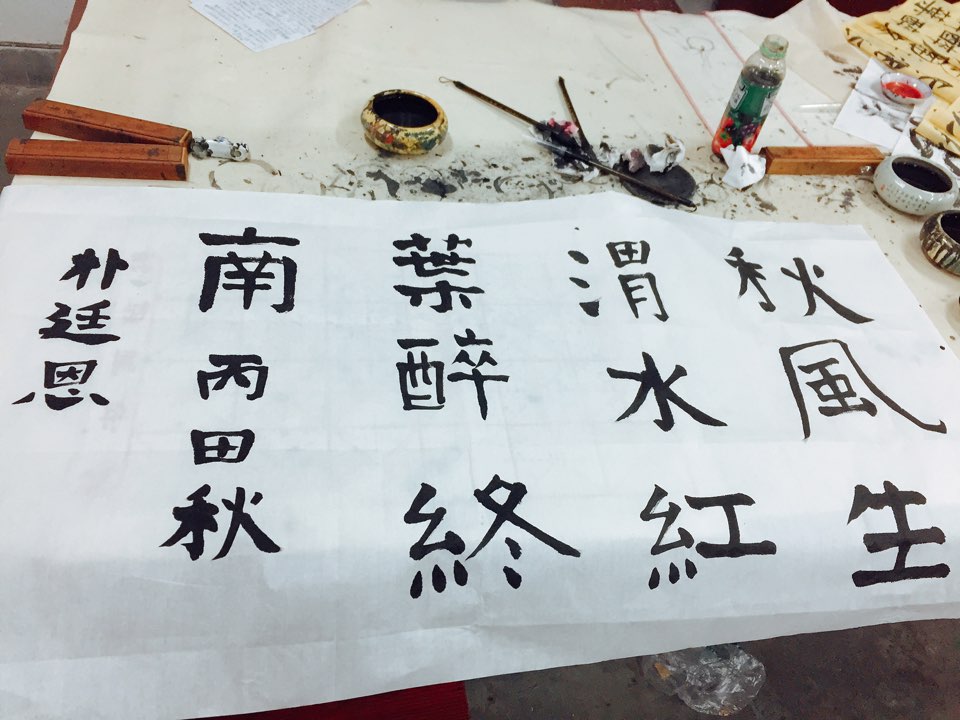 秋風生
渭水紅
葉醉終
南丙田秋
朴廷恩